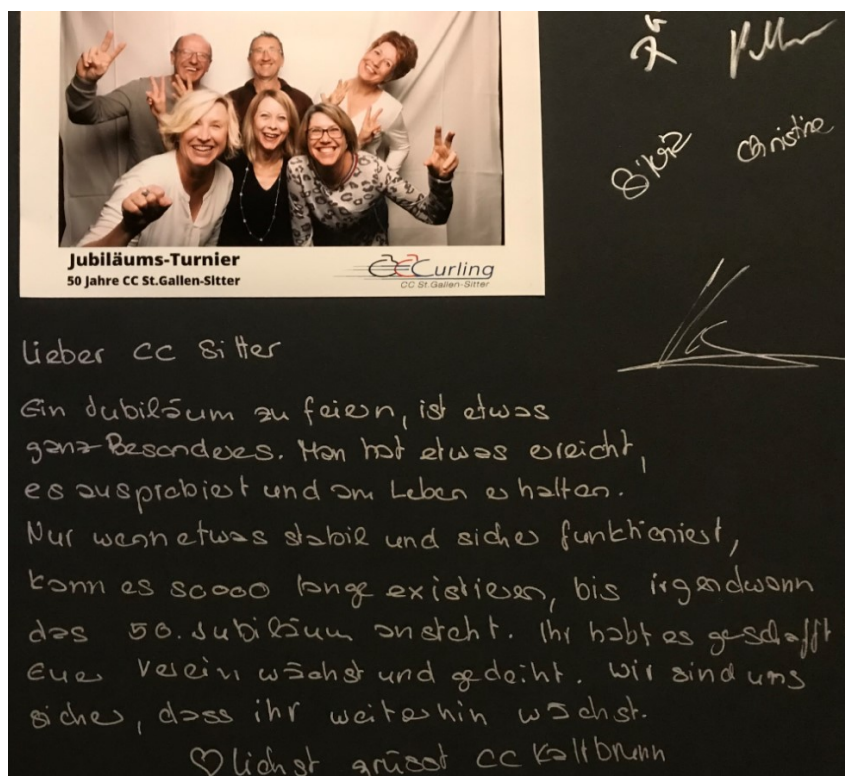 Silvia
Christine
Jubiläums-Turnier
50 Jahre CC St.Gallen-Sitter
Curling
CC St.Gallen-Sitter
Lieber CC Sitter
Ein Jubiläum zu feiern, ist etwas
ganz Besonderes. Man hat etwas erreicht,
es ausprobiert und am Leben erhalten.
Nur wenn etwas stabil und sicher funktioniert,
kann es soooo lange existieren, bis irgendwann
das 50. Jubiläum ansteht. Ihr habt es geschafft
Euer Verein wächst und gedeiht. Wir sind uns
sicher, dass ihr weiterhin wächst.
♡lichst grüsst CC Kaltbrunn